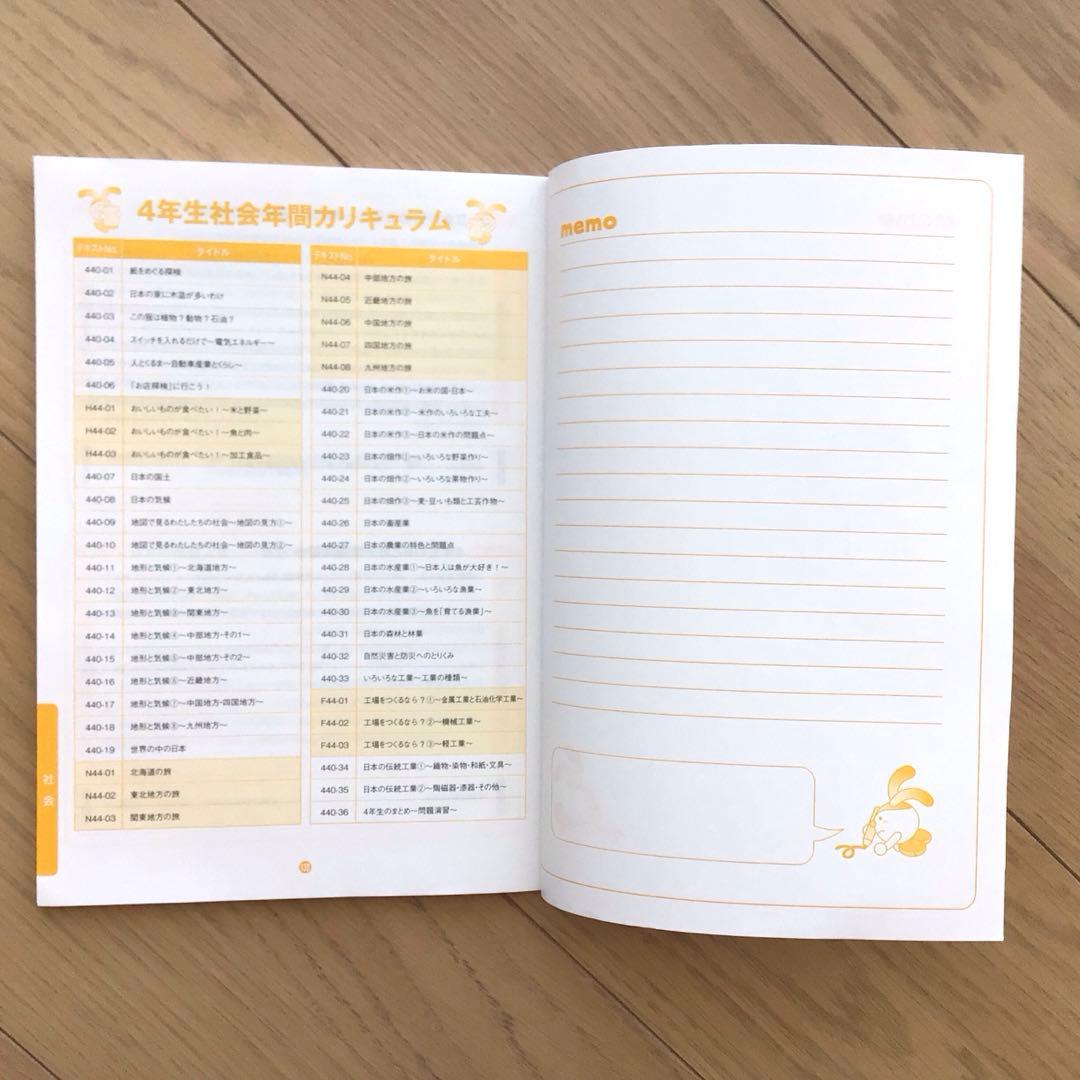 4年生社会年間カリキュラム
テキストNo. タイトル
440-01 紙をめぐる探検
440-02 日本の家に木造が多いわけ
440-03 この服は植物?動物?石油?
440-04 スイッチを入れるだけで〜電気エネルギー〜
440-05 人とくるま〜自動車産業とくらし〜
440-06 「お店探検」に行こう!
H44-01 おいしいものが食べたい!〜米と野菜〜
H44-02 おいしいものが食べたい!〜魚と肉〜
H44-03 おいしいものが食べたい!〜加工食品〜
440-07 日本の国土
440-08 日本の気候
440-09 地図で見るわたしたちの社会〜地図の見方①〜
440-10 地図で見るわたしたちの社会〜地図の見方②〜
440-11 地形と気候①〜北海道地方〜
440-12 地形と気候②〜東北地方〜
440-13 地形と気候③〜関東地方〜
440-14 地形と気候④〜中部地方・その1〜
440-15 地形と気候⑤〜中部地方・その2〜
440-16 地形と気候⑥〜近畿地方〜
440-17 地形と気候⑦〜中国地方・四国地方〜
440-18 地形と気候⑧〜九州地方〜
440-19 世界の中の日本
N44-01 北海道の旅
N44-02 東北地方の旅
N44-03 関東地方の旅
テキストNo. タイトル
N44-04 中部地方の旅
N44-05 近畿地方の旅
N44-06 中国地方の旅
N44-07 四国地方の旅
N44-08 九州地方の旅
440-20 日本の米作①〜お米の国・日本〜
440-21 日本の米作②〜米作のいろいろな工夫〜
440-22 日本の米作③〜日本の米作の問題点〜
440-23 日本の畑作①〜いろいろな野菜作り〜
440-24 日本の畑作②〜いろいろな果物作り〜
440-25 日本の畑作③〜麦・豆・いも類と工芸作物〜
440-26 日本の畜産業
440-27 日本の農業の特色と問題点
440-28 日本の水産業①〜日本人は魚が大好き!〜
440-29 日本の水産業②〜いろいろな漁業〜
440-30 日本の水産業③〜魚を「育てる漁業」〜
440-31 日本の森林と林業
440-32 自然災害と防災へのとりくみ
440-33 いろいろな工業〜工業の種類〜
F44-01 工場をつくるなら?①〜金属工業と石油化学工業〜
F44-02 工場をつくるなら?②〜機械工業〜
F44-03 工場をつくるなら?③〜軽工業〜
440-34 日本の伝統工業①〜織物・染物・和紙・文具〜
440-35 日本の伝統工業②〜陶磁器・漆器・その他〜
440-36 4年生のまとめ〜問題演習〜
社会
memo